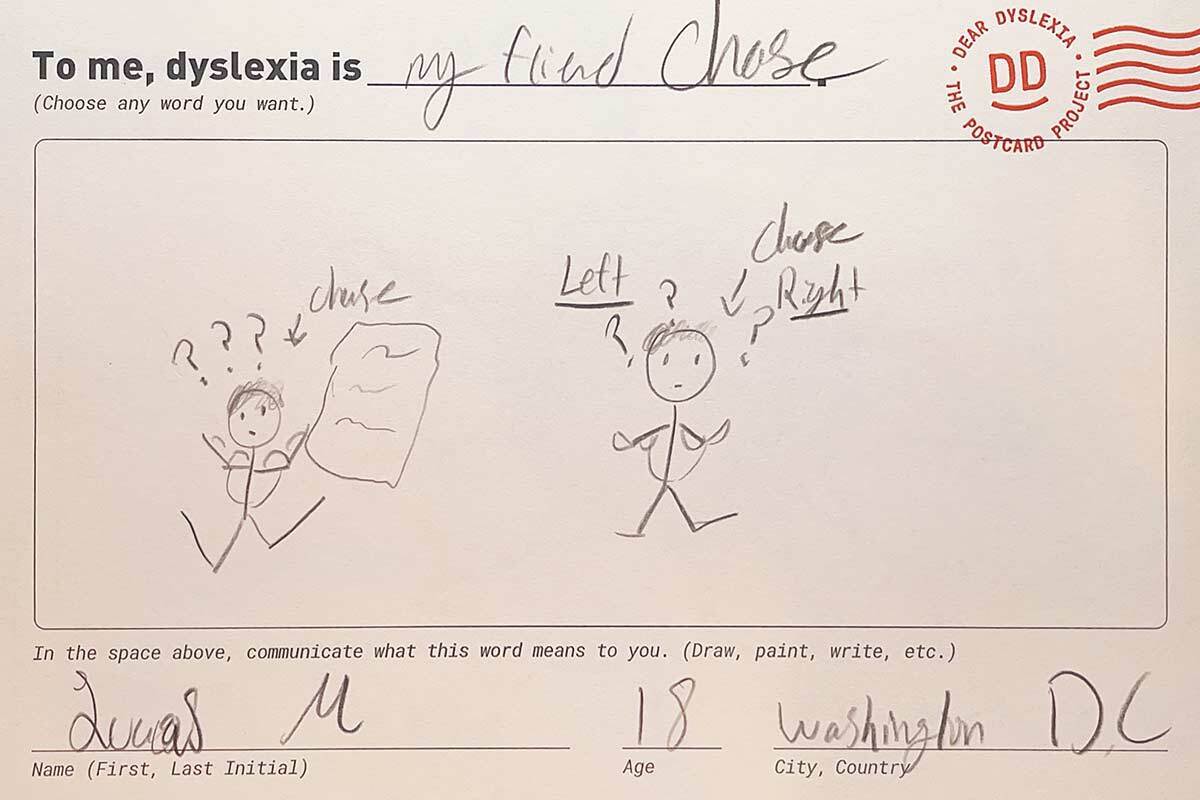 To me, dyslexia is my friend Chase.
(Choose any word you want.)
• DEAR DYSLEXIA • THE POSTCARD PROJECT
DD
Chase
? ? ?
Left
?
Chase
Right
? ?
In the space above, communicate what this word means to you. (Draw, paint, write, etc.)
Lucas M 18 Washington D.C
Name (First, Last Initial) Age City, Country